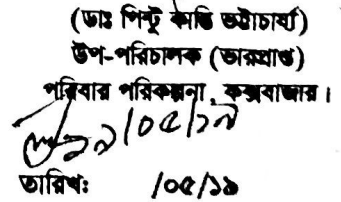 (ডাঃ পিন্টু কান্তি ভট্টাচার্য্য)
উপ-পরিচালক (ভারপ্রাপ্ত)
পরিবার পরিকল্পনা, কক্সবাজার।
১৯/০৫/১৯
তারিখঃ /০৫/১৯